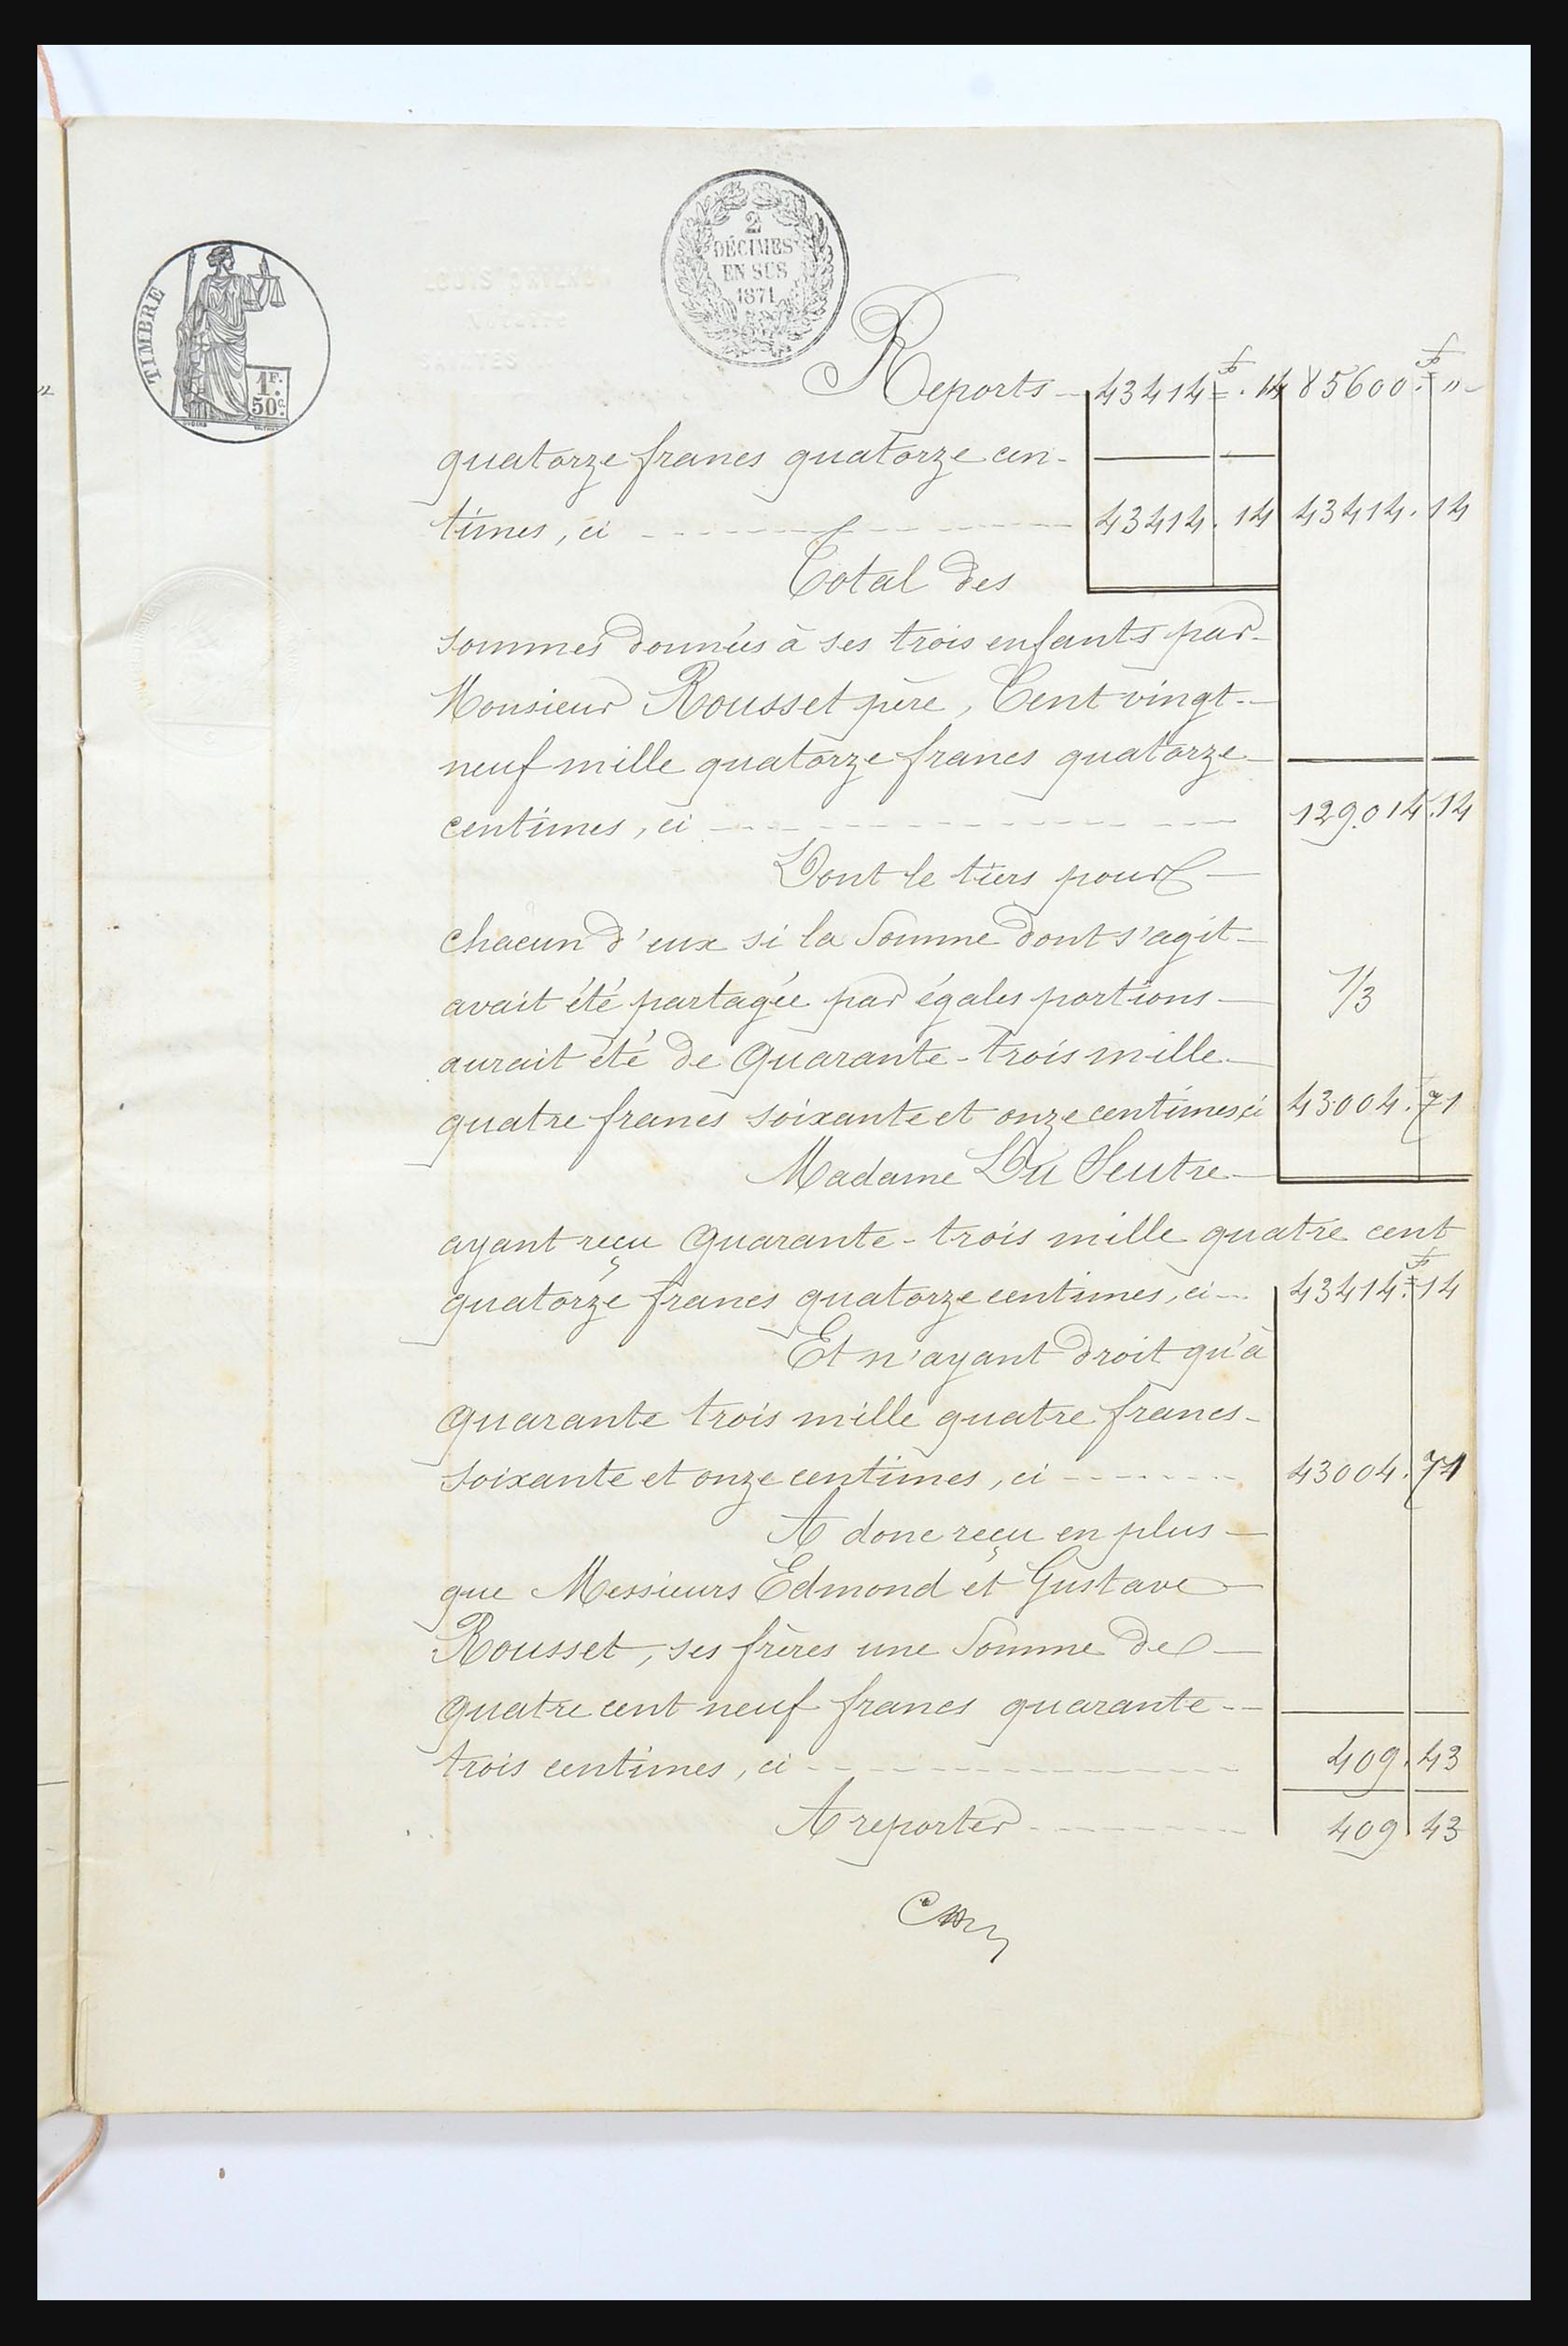 2
DÉCIMES
EN SUS
1871
TIMBRE
1F.
50c.
NOTAIRE
SAINTES
Reports 43414f.14 85600f."
quatorze francs quatorze cen-
times, ci 43414.14 43414.14
Total des
sommes données à ses trois enfants par
Monsieur Rousset père, Cent vingt-
neuf mille quatorze francs quatorze
centimes, ci 129.014.14
Dont le tiers pour
chacun d'eux si la somme dont s'agit
avait été partagée par égales portions 1/3
aurait été de quarante-trois mille
quatre francs soixante et onze centimes ci 43004.71
Madame Du Seutre
ayant reçu quarante-trois mille quatre cent
quatorze francs quatorze centimes, ci 43414f.14
Et n'ayant droit qu'à
quarante trois mille quatre francs
soixante et onze centimes, ci 43004.71
A donc reçu en plus
que Messieurs Edmond et Gustave
Rousset, ses frères une somme de
quatre cent neuf francs quarante
trois centimes, ci 409.43
A reporter 409 43